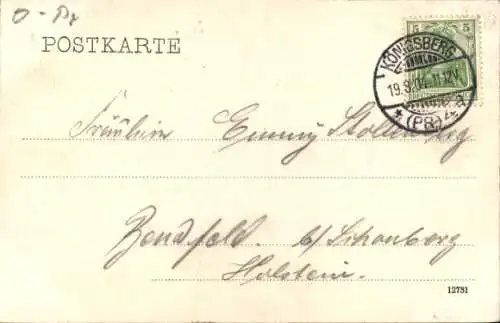 O-Pr
POSTKARTE
5 5
KÖNIGSBERG
19.8.04 11-12V.
* (PR.) 4 a
Fräulein Emmy Stoltenberg
Bendfeld. b/Schönberg
Holstein.
12731